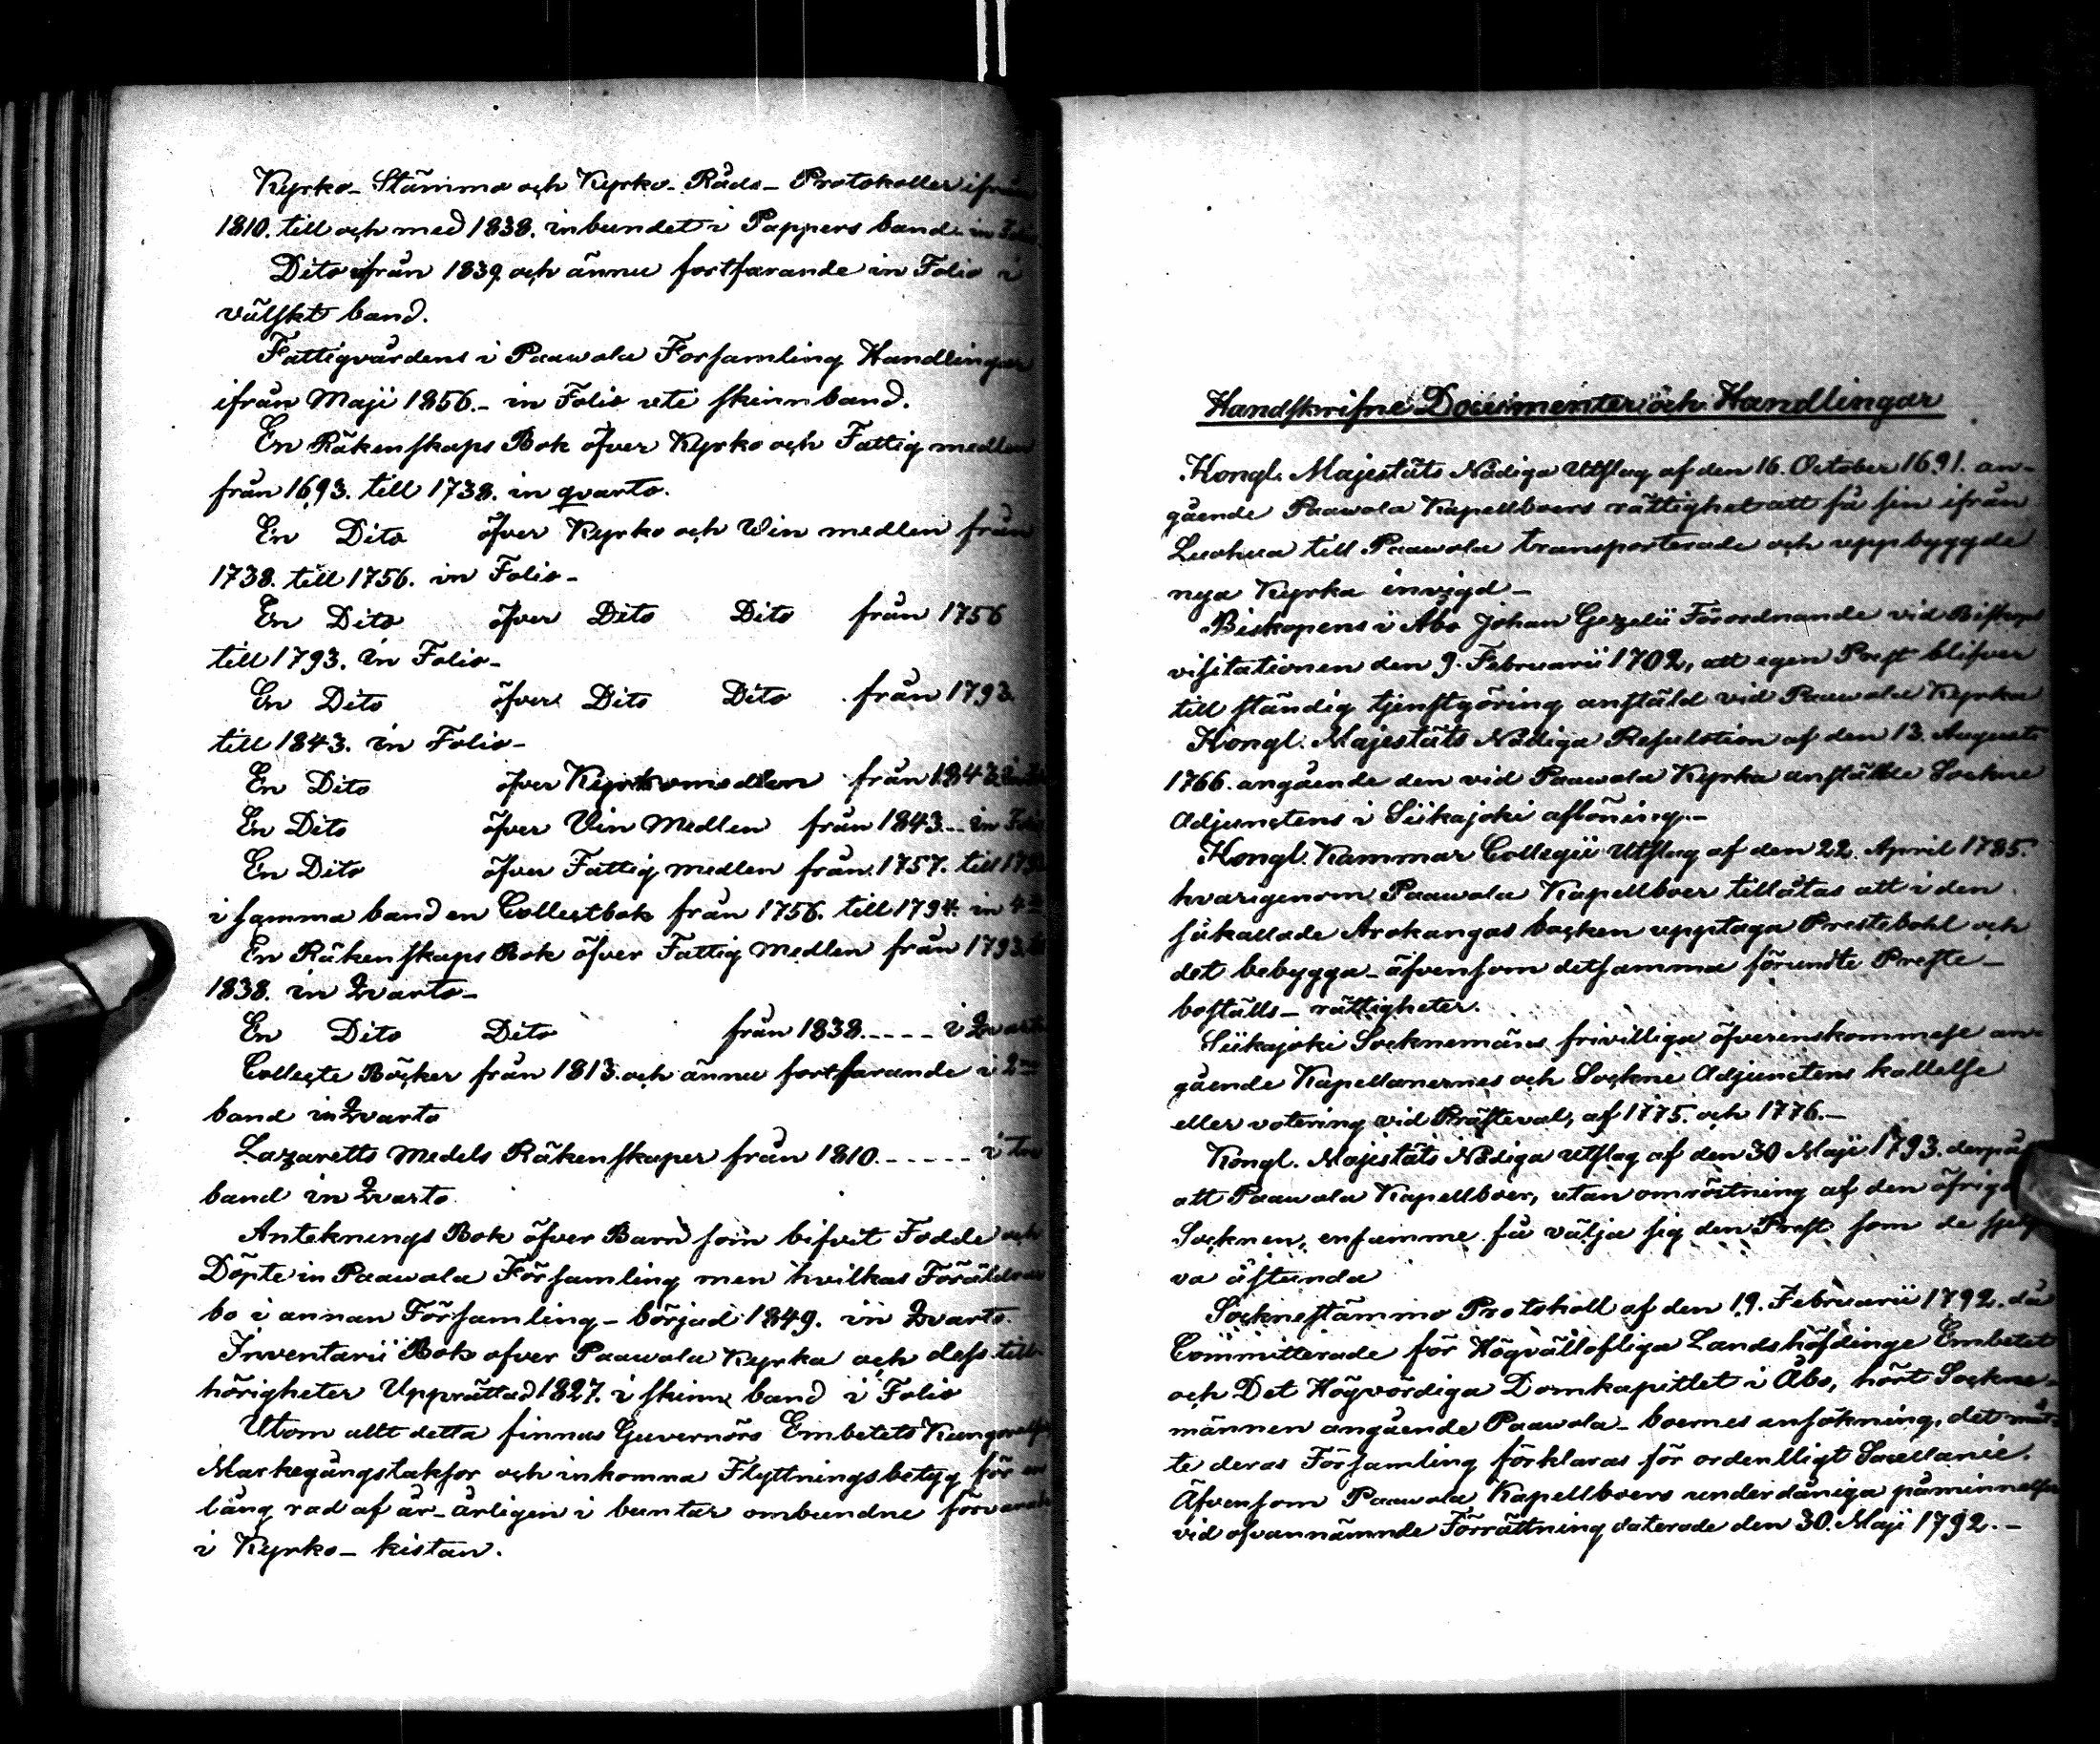 Kyrko- Stämmo och Kyrko- Råds- Protokoller ifrån
1810. till och med 1838. inbundet i Pappers band in Folio
Dito ifrån 1839. och ännu fortfarande in Folio i
välskt band.
Fattigvårdens i Paawola Forsamling Handlingar
ifrån Maji 1856.- in Folio uti skinnband.
En Räkenskaps Bok öfver Kyrko och Fattig medlen
från 1693. till 1738. in qvarto.
En Dito öfver Kyrko och Win medlen från
1738. till 1756. in Folio-
En Dito öfver Dito Dito från 1756
till 1793. in Folio-
En Dito öfver Dito Dito från 1793.
till 1843. in Folio-
En Dito öfver Kyrkomedlen från 1843
En Dito öfver Vin Medlen från 1843.-- in Folio
En Dito öfver Fattig medlen från 1757. till
i samma band en Collectbok från 1756. till 1794. in 4to
En Räkenskaps Bok öfver Fattig Medlen från 1793.
1838. in Qvarto-
En Dito Dito från 1838.---- i Qvarto
Collecte Böcker från 1813. och ännu fortfarande i 2ne
band in Qvarto
Lazaretts Medels Räkenskaper från 1810.----- i
band in Qvarto
Anteknings Bok öfver Barn som bifvit Fodde och
Döpte in Paawola Församling men hvilkas Föräldrar
bo i annan Församling- börjad 1849. in Qvarto.
Inventarii Bok ofver Paawola Kyrka och dess till-
hörigheter Upprättad 1827. i skinn band i Folio
Utom allt detta finnas Guvernörs Embetets
Markegångstaxor och inkomna Flyttningsbetyg för en
lång rad af år- årligen i buntar ombundne förvarade
i Kyrko- kistan.
Handskrifne Documenter och Handlingar
Kongl. Majestäts Nådiga Utslag af den 16. October 1691. an-
gående Paawola Kapellboers rättighet att få sin ifrån
Luohua till Paawola transporterade och uppbyggde
nya Kyrka invigd-
Biskopens i Abo Johan Gezelii Förordnande vid Biskops
visitationen den 9. Februarii 1702, att egen Prest blifver
till ständig tjenstgöring anstäld vid Paawola Kyrka
Kongl. Majestäts Nådiga Resolution af den 13. Augusti
1766. angående den vid Paawola Kyrka anstälde Sockne
Adjunctens i Siikajoki aflöning.-
Kongl. Kammar Collegii Utslag af den 22. April 1785.
hvarigenom Paawola Kapellboer tillåtas att i den
såkallade Arokangas backen upptaga Prestebohl och
det bebygga- äfvensom detsamma förundte Preste-
boställs- rättigheter.
Siikajoki Socknemäns frivilliga öfverenskommese an-
gående Kapellanernes och Sockne Adjunctens kallelse
eller votering vid Prästeval, af 1775. och 1776.-
Kongl. Majestäts Nådiga utslag af den 30 Maji 1793. derpå
att Paawola Kapellboer, utan omröstning af den öfriga
Socknen, ensamme få välja sig den Prest som de sjelf
va åstunda
Socknestämmo Protokoll af den 19. Februarii 1792. då
Committerade för Högvällofliga Landshöfdinge Embetet
och Det Högvördiga Domkapitlet i Åbo, hört Sockne-
männen angående Paawola- boernes ansökning, det måt-
te deras Församling förklaras för ordentligt Sacellanie.
Äfvensom Paawola Kapellboers underdåniga påminnelser
vid ofvannämnde Förrättning daterade den 30. Maji 1792.-